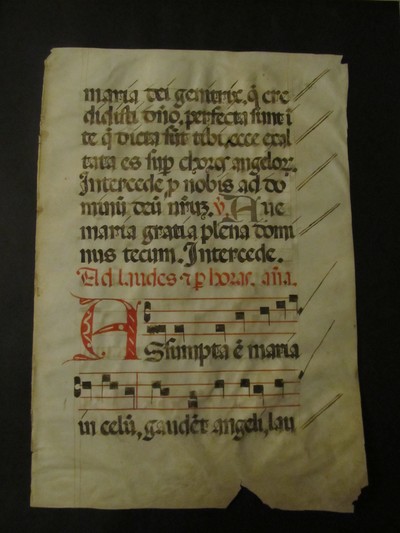 maria dei genitrix, q̃ cre
didisti dño, perfecta sunt i
te q̃ dicta sũt tibi, ecce exal
tata es suꝑ choros angeloꝝ.
Intercede ꝓ nobis ad do
minũ deũ nr̃uꝫ. ℣ Aue
maria gratia plena domi
nus tecum. Intercede.
Ad laudes ⁊ ꝑ horas. añа.
Assumpta ẽ maria
in celũ, gaudẽt angeli, lau